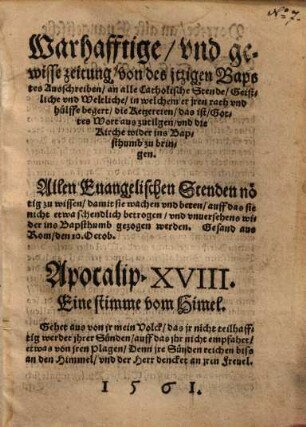 No 7.
Warhafftige/ vnd ge-
wisse zeitung/ von des jtzigen Baps
tes Ausschreiben/ an alle Catholische Stende/ Geist-
liche vnd Weltliche/ in welchem er jren rath vnd
hülffe begert/ die Ketzereien/ das ist/ Got-
tes Wort aus zutilgen/ vnd die
Kirche wider ins Bap-
sthumb zu brin-
gen.
Allen Euangelischen Stenden nö
tig zu wissen/ damit sie wachen vnd beten/ auff das sie
nicht etwa schendlich betrogen/ vnd vnuersehens wi
der ins Bapsthumb gezogen werden. Gesand aus
Rom/ den 20. Octob.
Apocalip. XVIII.
Eine stimme vom Himel.
Gehet aus von jr mein Volck/ das jr nicht teilhaff
tig werdet jhrer Sünden/ auff das jhr nicht empfahet/
etwas von jren Plagen/ Denn jre Sünden reichen biss
an den Himmel/ vnd der Herr dencket an jren Freuel.
1561.